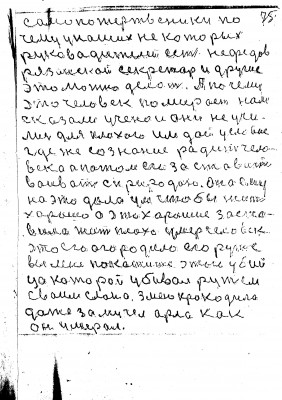 75.
само пожертвеники по
чему у наших не которых
руковадителей есть не федов
рязанской секретар и другие
это можно делат. А почему
это человек помирает нам
сказали учено и они не учи
лиц для плохого им дай условие
где же сознание
века а патом его за ставит
ваиват с природаю. Она ему
на это дала ум чтобы жить
харашо а эта харошие заста
вила жит плохо умер человек
его огородило его рукой
вы мне покажите этого убий
цу которой убивал ружем
своим слона. Змею крокодила
даже замучел арла как
он умирал.